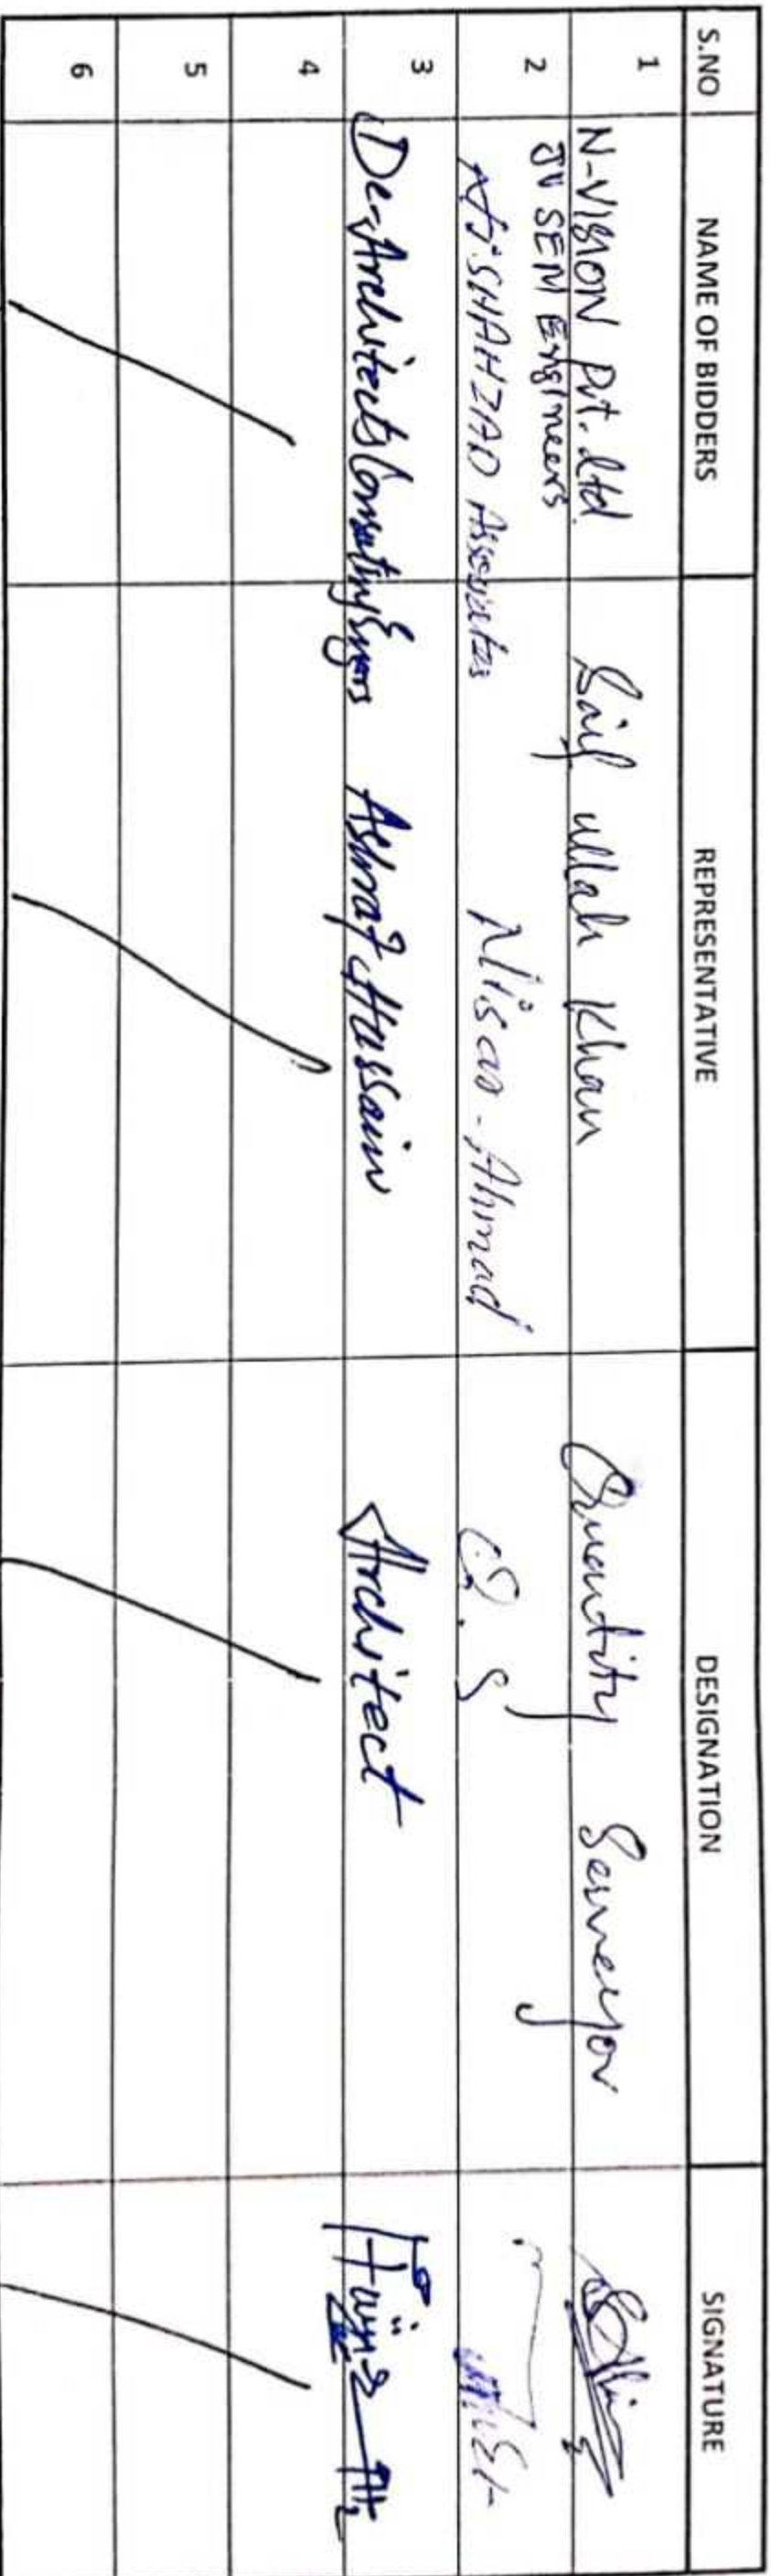 S.NO NAME OF BIDDERS REPRESENTATIVE DESIGNATION SIGNATURE
1 N-VISION Pvt. Ltd. Saif ullah Khan Quantity Serveyor
JV SEM Engineers
2 SHAHZAD Associates Nisar-Ahmad Q.S
3 De-Architects Consulting Engrs Ashraf Hussain Architect
4
5
6